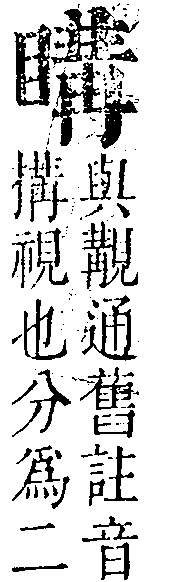 與覯通舊註音
搆視也分爲二